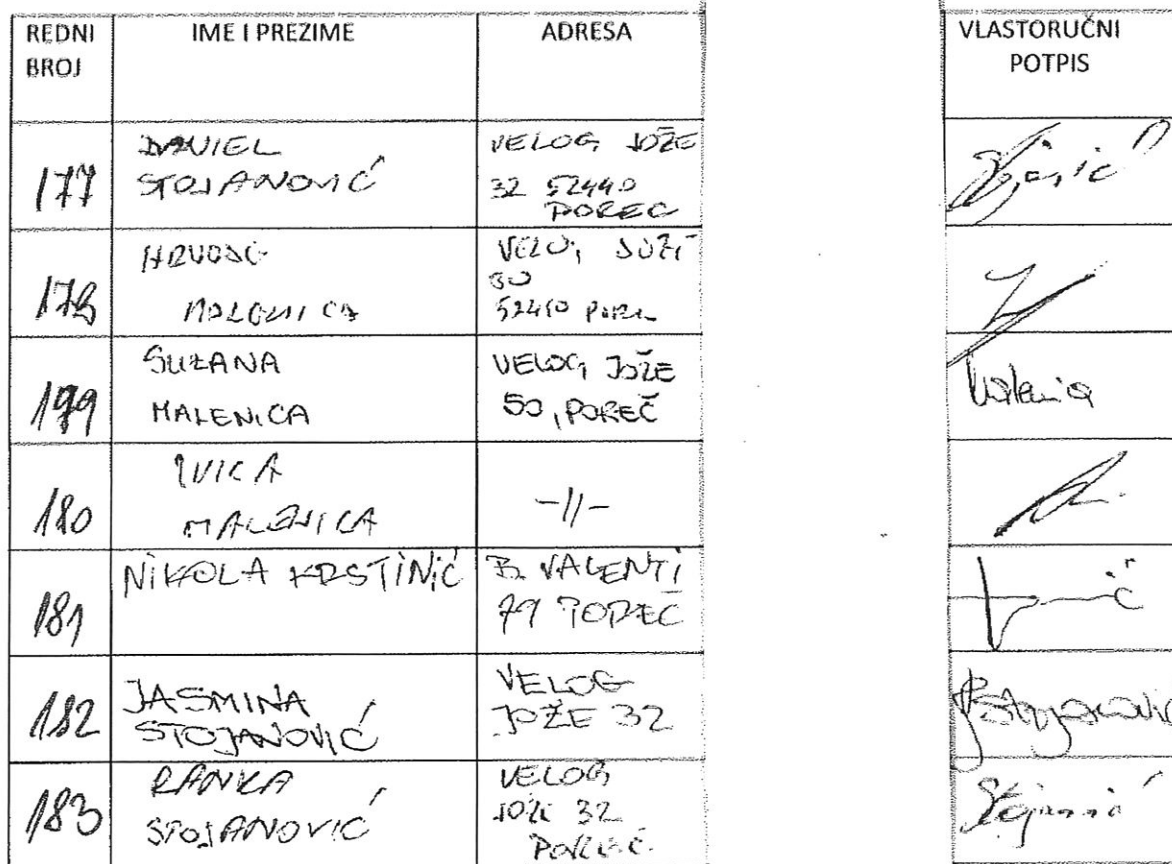 REDNI BROJ IME I PREZIME ADRESA VLASTORUČNI POTPIS
177
DANIEL
STOJANOVIĆ
VELOG JOŽE
32 52440
POREČ
178
HRVOJE
MALENICA
VELOG JOŽE
50
52440
179
SUZANA
MALENICA
VELOG JOŽE
50, POREČ
Malenica
180
IVICA
MALENICA
-//-
181
NIKOLA KRSTINIĆ
B. VALENTI
79 POREČ
182
JASMINA
STOJANOVIĆ
VELOG
JOŽE 32
Stojanović
183
RANKA
STOJANOVIĆ
VELOG
JOŽE 32
POREČ
Stojanović